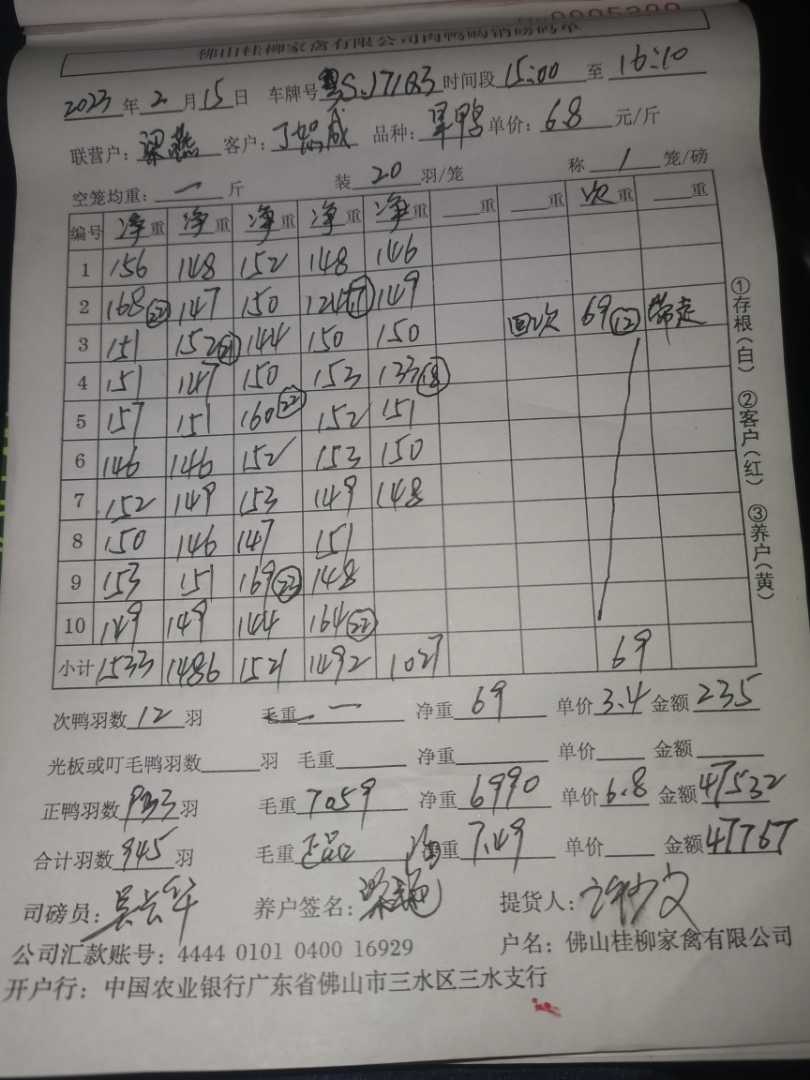 佛山桂柳家禽有限公司肉鸭购销磅码单
2023年2月15日 车牌号粤S.J71B3时间段15:00至16:10
联营户:梁燕 客户: 品种: 单价:6.8元/斤
空笼均重:一斤 装20羽/笼 称1笼/磅
编号 净重 净重 净重 净重 净重 重 重 次重 重
1 156 148 152 148 146
2 168㉒ 147 150 124⑰ 149
3 151 152㉑ 144 150 150 回次 69⑫ 带走
4 151 147 150 153 133⑱
5 157 151 160㉒ 152 151
6 146 146 152 153 150
7 152 149 153 149 148
8 150 146 147 151
9 153 151 169㉓ 148
10 149 149 144 164㉒
小计 1533 1486 1521 1492 1027 69
①存根(白) ②客户(红) ③养户(黄)
次鸭羽数12羽 毛重一 净重69 单价3.4金额235
光板或叮毛鸭羽数 羽 毛重 净重 单价 金额
正鸭羽数933羽 毛重7059 净重6990 单价6.8金额47532
合计羽数945羽 毛重正品 均重7.49 单价 金额47767
司磅员: 养户签名: 提货人:
公司汇款账号:4444 0101 0400 16929 户名:佛山桂柳家禽有限公司
开户行:中国农业银行广东省佛山市三水区三水支行